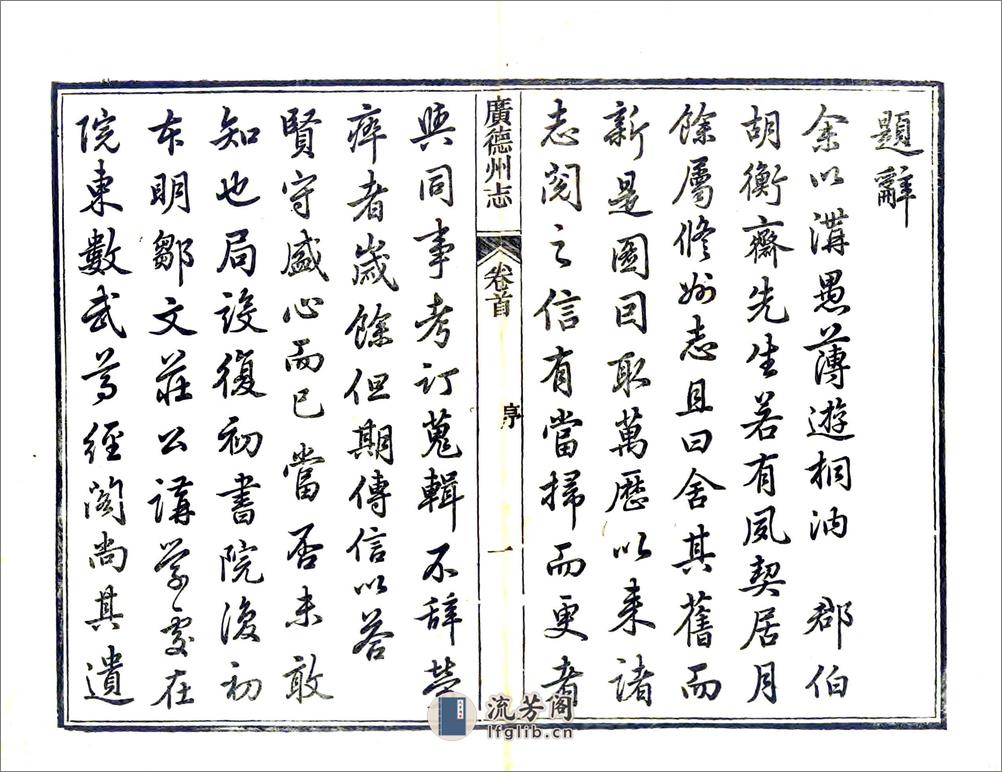 題辭
余以溝愚薄遊桐汭　郡伯
胡衡齋先生若有夙契居月
餘屬修州志且曰舍其舊而
新是圖因取萬曆以來諸
志閱之信有當掃而更者
廣德州志
卷首
序
一
與同事考訂蒐輯不辭勞
瘁者歲餘但期傳信以答
賢守盛心而已當否未敢
知也局設復初書院復初
本明鄒文莊公講學處在
院東數武尊經閣尚其遺
流芳阁
lfglib.cn